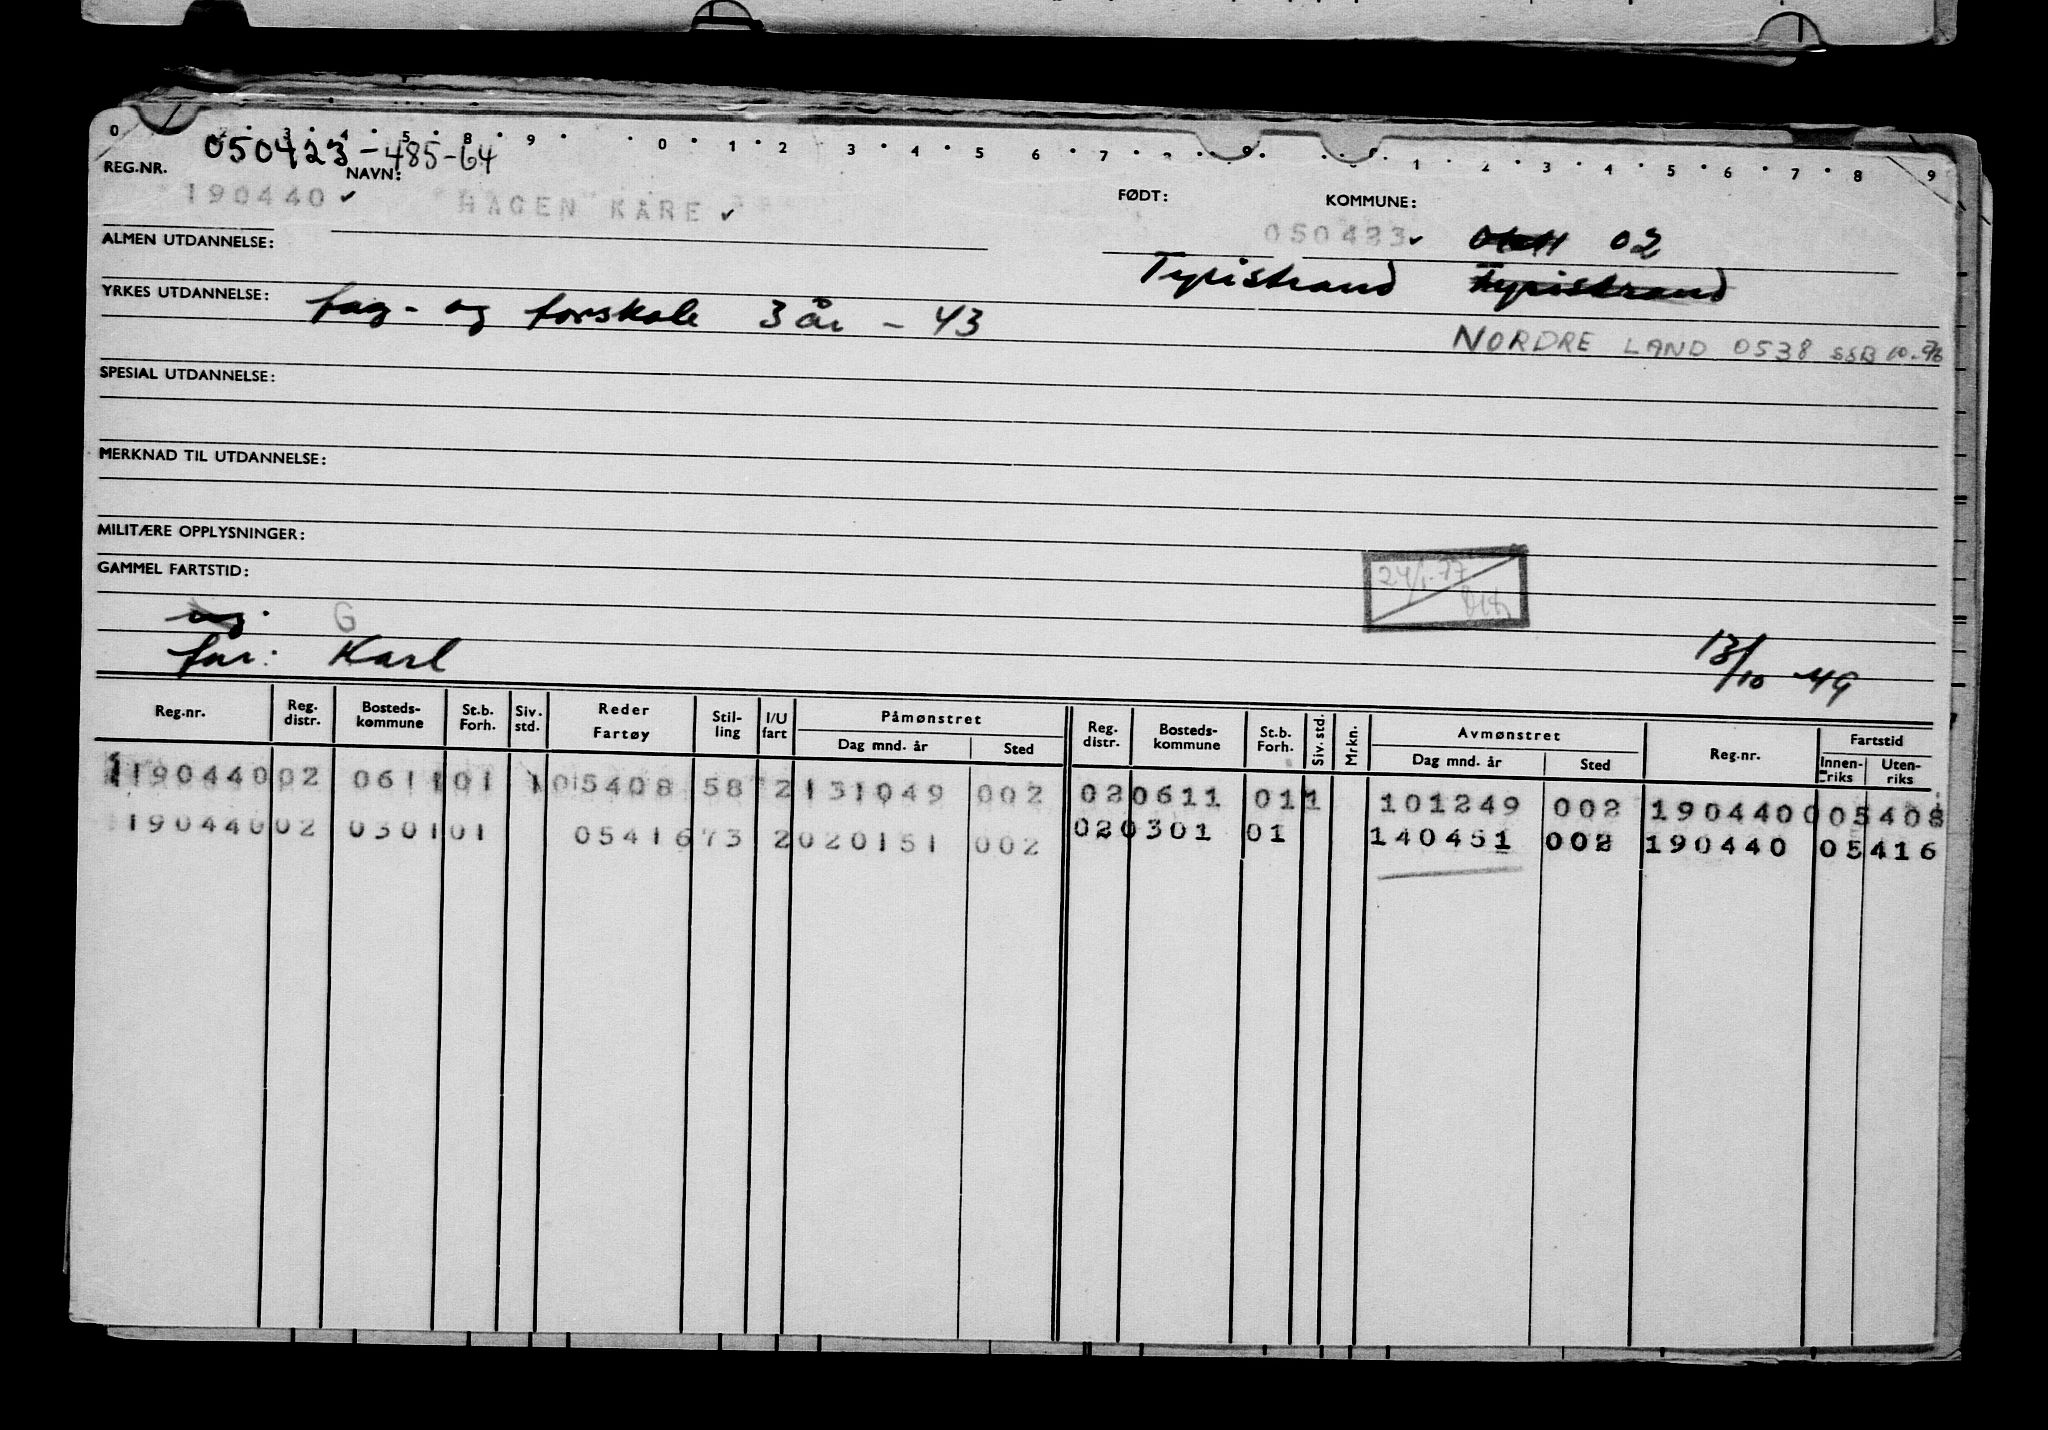 0 3 4 5 8 9 0 1 2 3 4 5 6 7 9 1 2 3 4 5 6 7 8 9
050423-485-64
REG.NR. NAVN: FØDT: KOMMUNE:
190440 ✓ HAGEN KARE ✓ 050423 ✓ 02
ALMEN UTDANNELSE: Tyristrand Tyristrand
YRKES UTDANNELSE: fag- og forskole 3 år - 43
NORDRE LAND 0538 SSB
SPESIAL UTDANNELSE:
MERKNAD TIL UTDANNELSE:
MILITÆRE OPPLYSNINGER:
GAMMEL FARTSTID:
24/1-77
G
far: Karl
13/10 49
Reg.nr. Reg. distr. Bosteds-kommune St.b. Forh. Siv. std. Reder Fartøy Stil-ling I/U fart Påmønstret Dag mnd. år Sted Reg. distr. Bosteds-kommune St.b. Forh. Siv. std. Mrkn. Avmønstret Dag mnd. år Sted Reg.nr. Fartstid Innen-riks Uten-riks
190440 02 0611 01 1 05408 58 2 131049 002 02 0611 01 1 101249 002 190440 0 05408
190440 02 0301 01 05416 73 2 020151 002 02 0301 01 140451 002 190440 05416